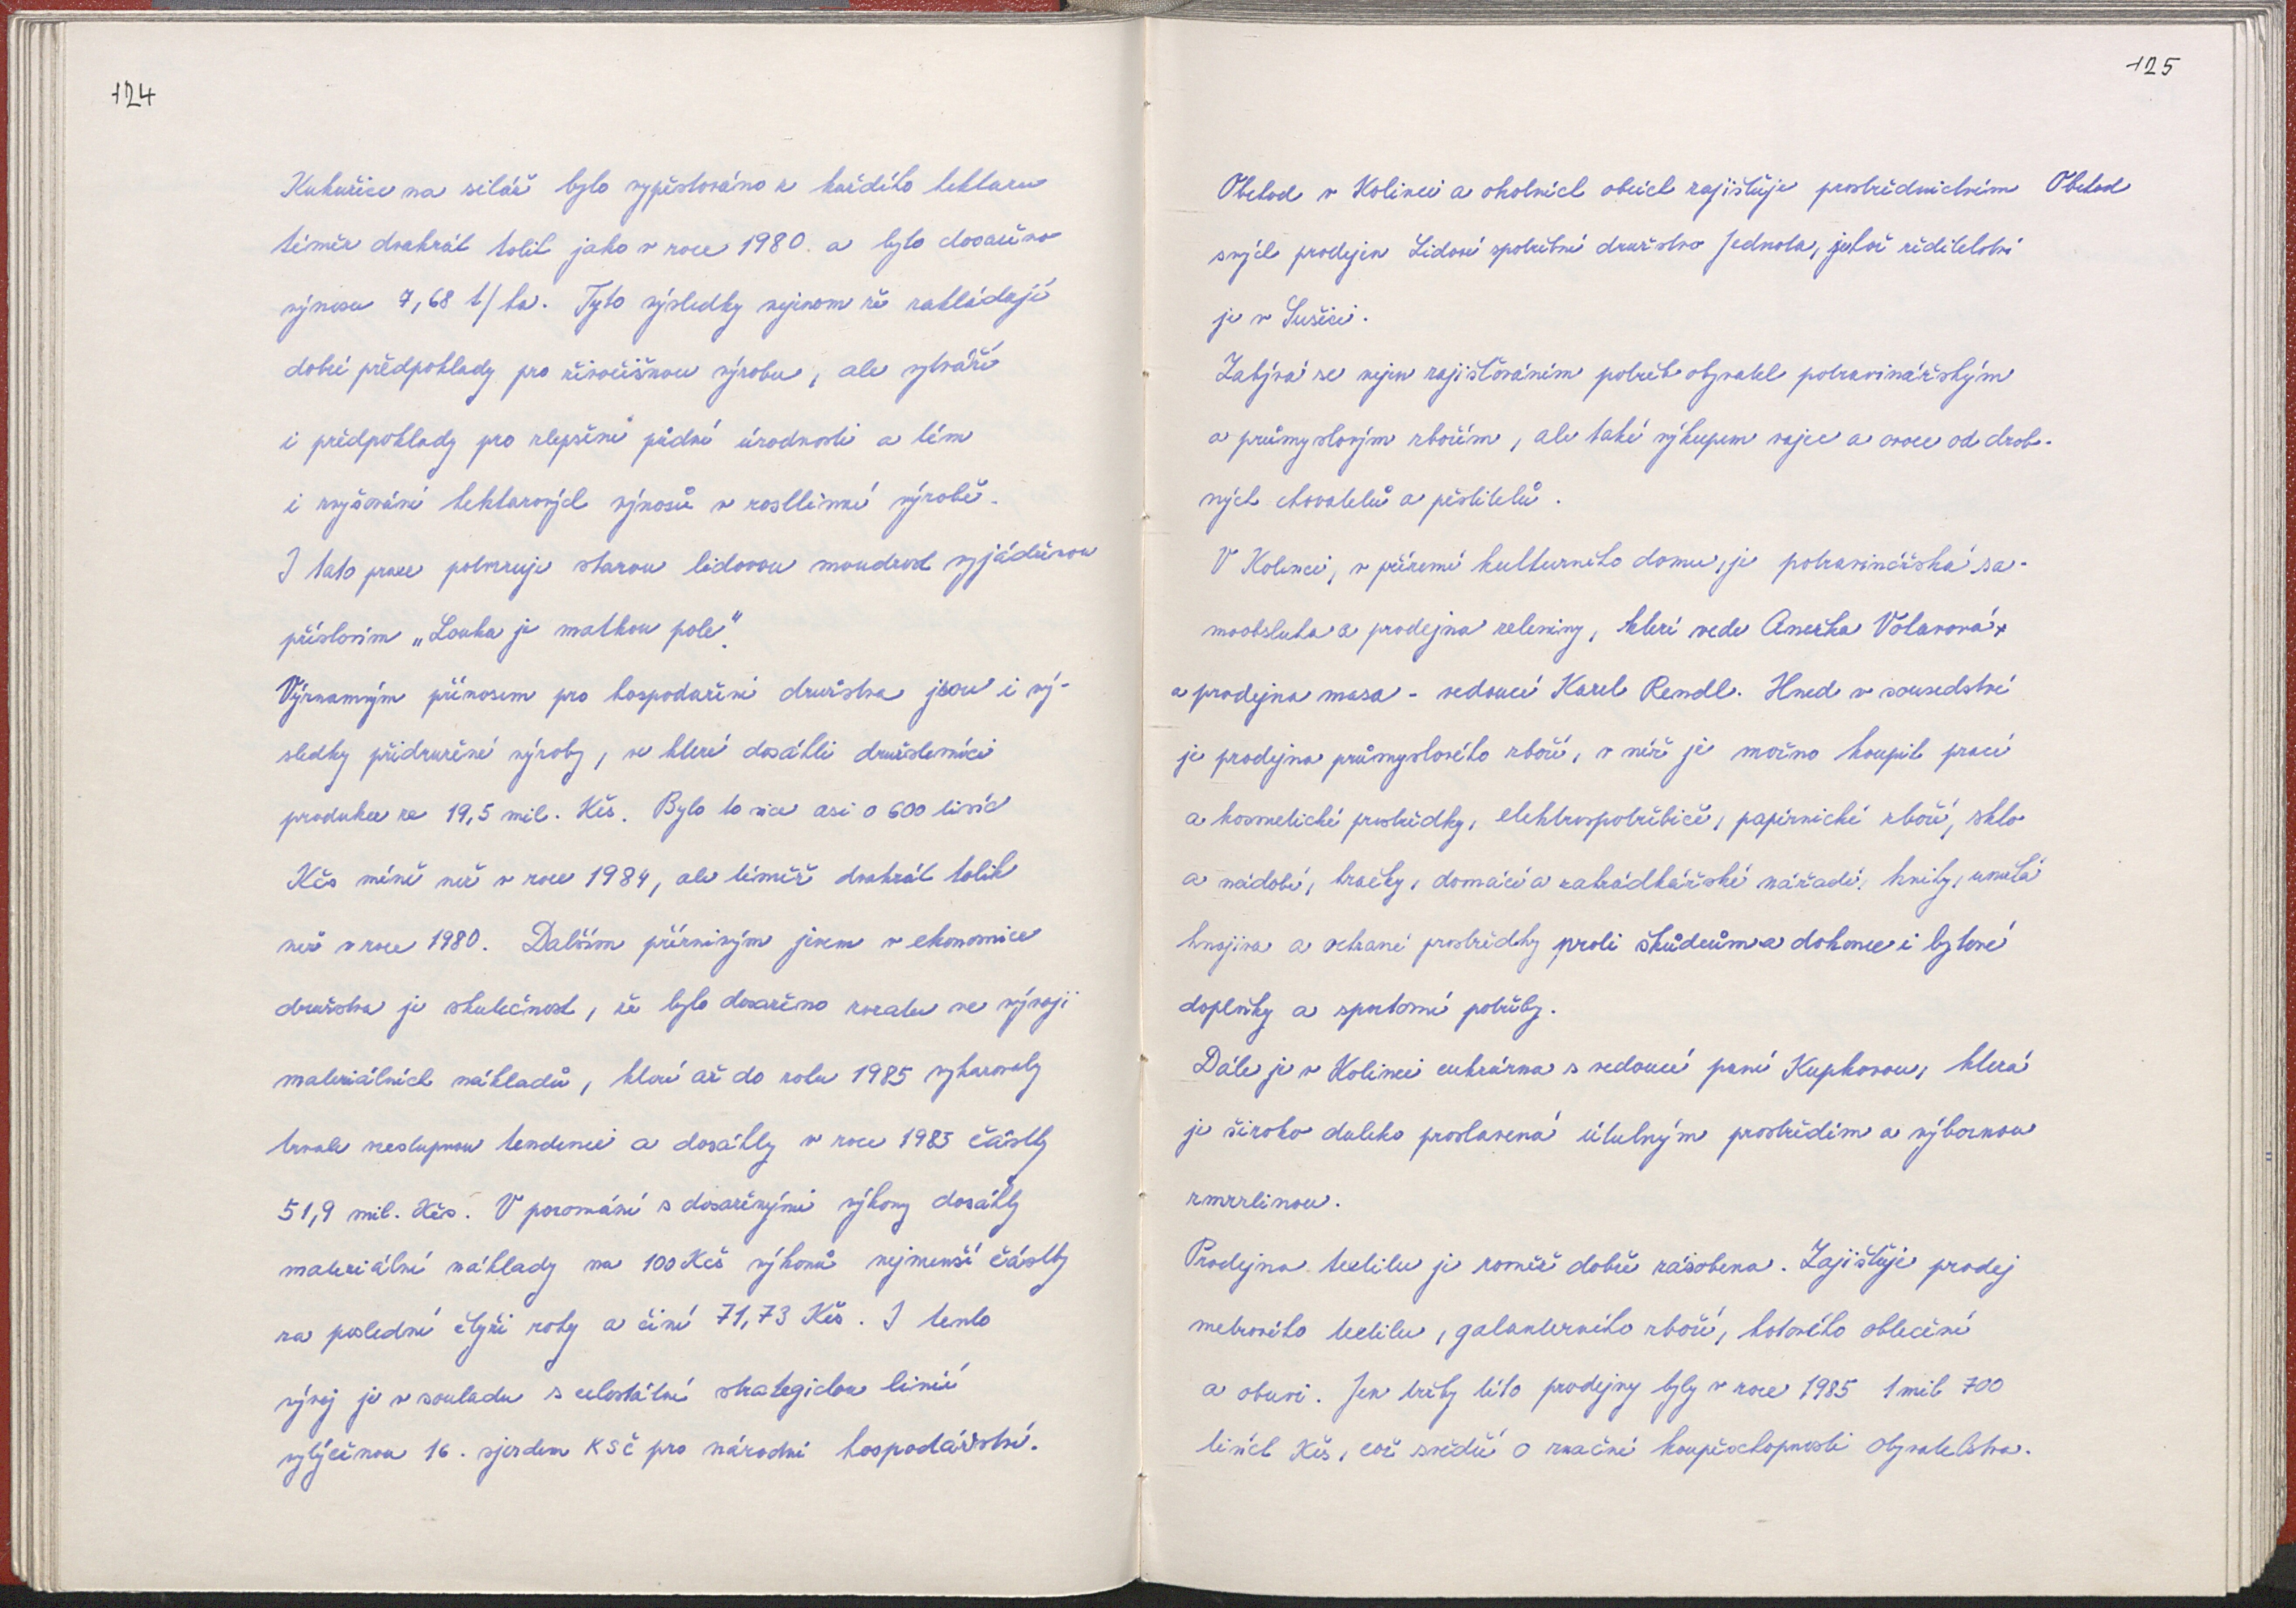 124
Kukuřice na siláž bylo vypěstováno z každého hektaru
téměř dvakrát tolik jako v roce 1980 a bylo dosaženo
výnosu 7,68 t/ha. Tyto výsledky nejenom že zakládají
dobré předpoklady pro živočišnou výrobu, ale vytváří
i předpoklady pro zlepšení půdní úrodnosti a tím
i zvyšování hektarových výnosů v rostlinné výrobě.
I tato praxe potvrzuje starou lidovou moudrost vyjádřenou
příslovím „Louka je matkou pole".
Významným přínosem pro hospodaření družstva jsou i vý-
sledky přidružené výroby, ve které dosáhli družstevníci
produkce za 19,5 mil. Kčs. Bylo to sice asi o 600 tisíc
Kčs méně než v roce 1984, ale téměř dvakrát tolik
než v roce 1980. Dalším příznivým jevem v ekonomice
družstva je skutečnost, že bylo dosaženo zvratu ve vývoji
materiálních nákladů, které až do roku 1985 vykazovaly
trvale vzestupnou tendenci a dosáhly v roce 1985 částky
51,9 mil. Kčs. V porovnání s dosaženými výkony dosáhly
materiální náklady na 100 Kčs výkonů nejmenší částky
za poslední čtyři roky a činí 71,73 Kčs. I tento
vývoj je v souladu s celostátní strategickou linií
vytýčenou 16. sjezdem KSČ pro národní hospodářství.
125
Obchod v Kolinci a okolních obcích zajišťuje prostřednictvím Obchod
svých prodejen Lidové spotřební družstvo Jednota, jehož ředitelství
je v Sušici.
Zabývá se nejen zajišťováním potřeb obyvatel potravinářským
a průmyslovým zbožím, ale také výkupem vajec a ovoce od drob-
ných chovatelů a pěstitelů.
V Kolinci, v přízemí kulturního domu, je potravinářská sa-
moobsluha a prodejna zeleniny, které vede Anežka Volavová +
a prodejna masa - vedoucí Karel Rendl. Hned v sousedství
je prodejna průmyslového zboží, v níž je možno koupit prací
a kosmetické prostředky, elektrospotřebiče, papírnické zboží, sklo
a nádobí, hračky, domácí a zahrádkářské nářadí, knihy, umělá
hnojiva a ochrané prostředky proti škůdcům a dokonce i bytové
doplňky a sportovní potřeby.
Dále je v Kolinci cukrárna s vedoucí paní Kupkovou, která
je široko daleko proslavená útulným prostředím a výbornou
zmrzlinou.
Prodejna textilu je rovněž dobře zásobena. Zajišťuje prodej
metrového textilu, galanterního zboží, hotového oblečení
a obuvi. Jen tržby této prodejny byly v roce 1985 1 mil 700
tisích Kčs, což svědčí o značné koupěschopnosti obyvatelstva.